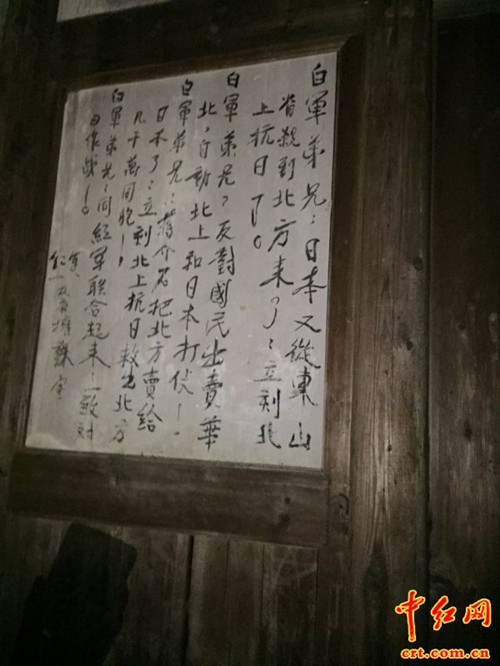 白軍弟兄：日本又從東山
省親到北方来了：立刻北
上抗日了。
白軍弟兄？反對國民出賣華
北，自動北上和日本打仗！
白軍弟兄：蔣介石把北方賣給
日本了：立刻北上抗日救出北方
几千萬同胞！
白軍弟兄：同紅軍联合起来一致对
日作战！。
中红网
crt.com.cn